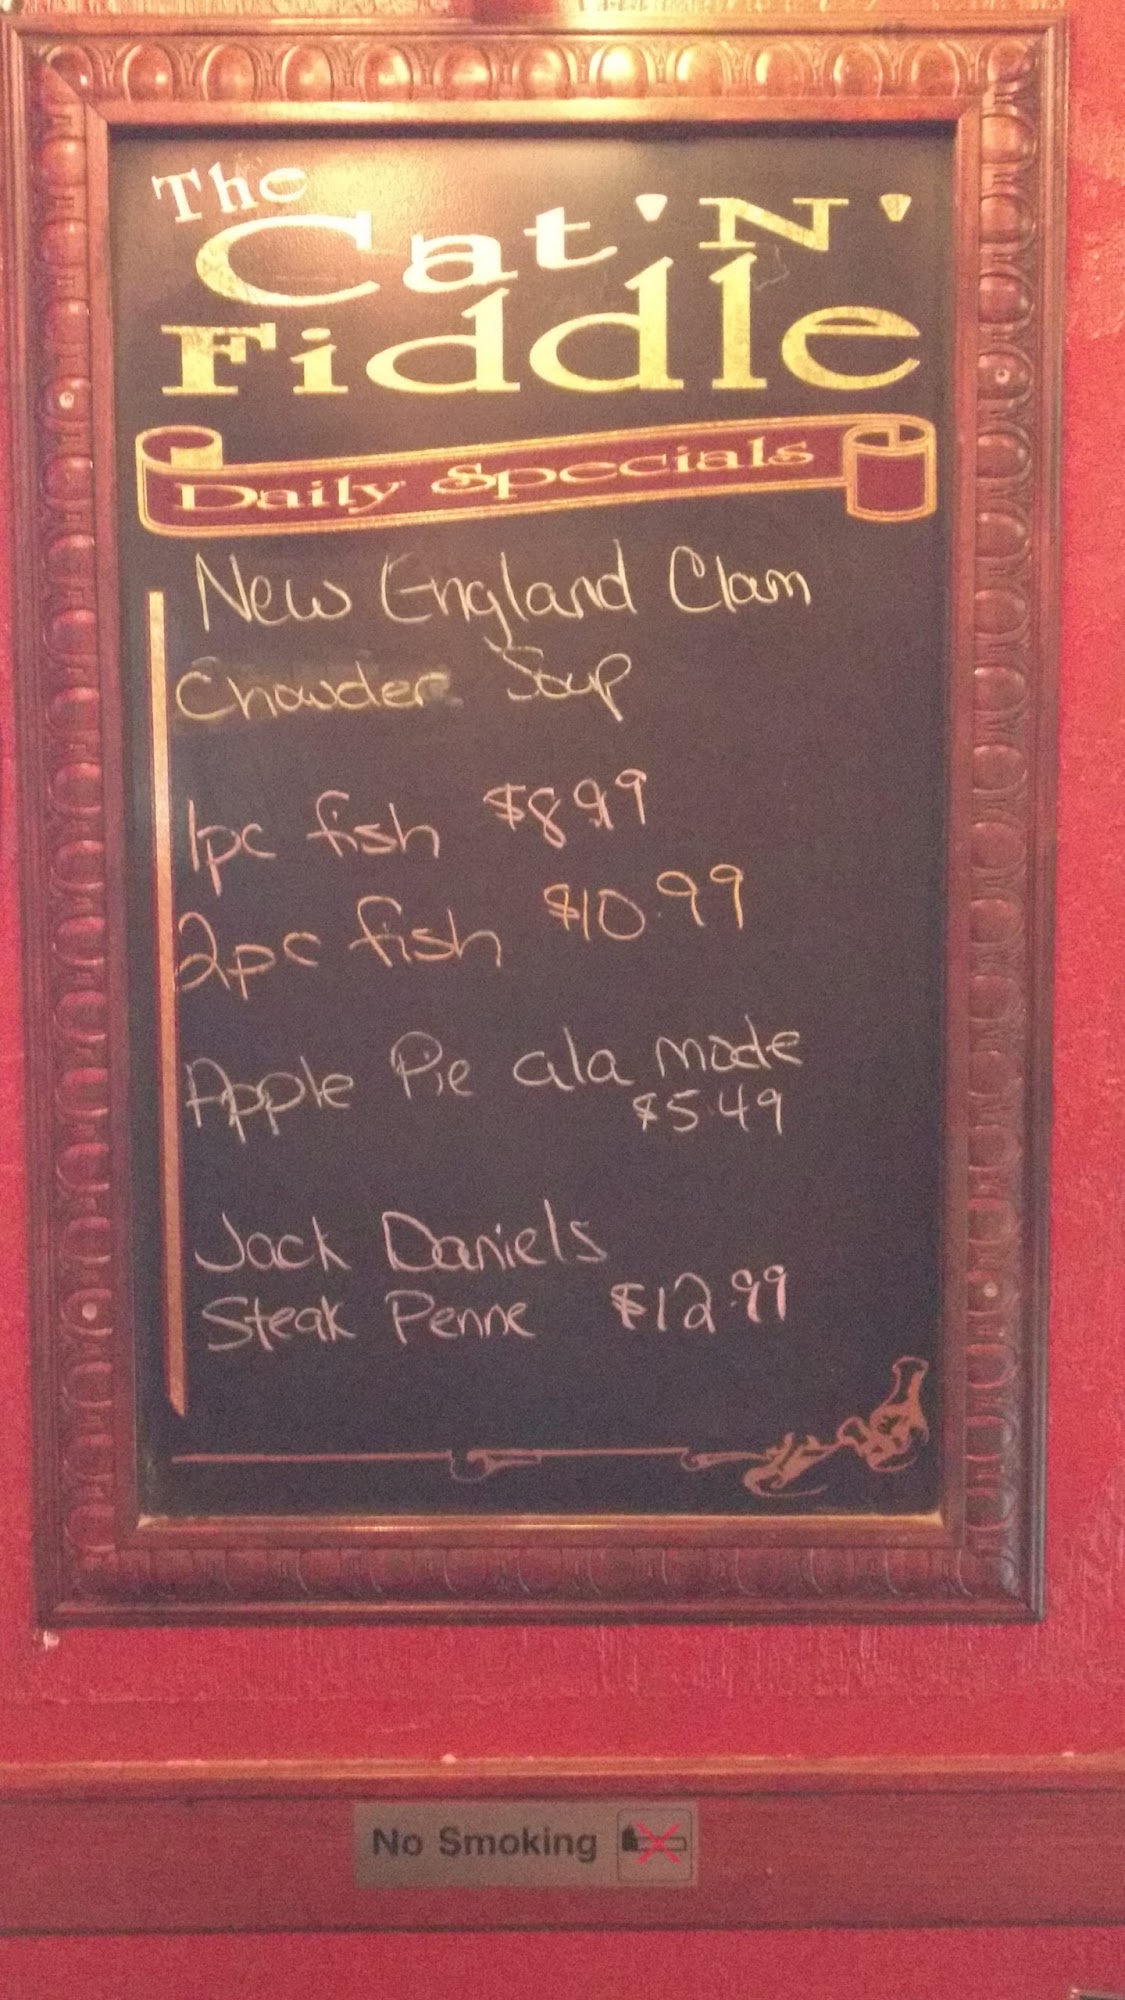 The
Cat 'N'
Fiddle
Daily Specials
New England Clam
Chowder Soup
1pc fish $8.99
2pc fish $10.99
Apple Pie ala mode
$5.49
Jack Daniels
Steak Penne $12.99
No Smoking